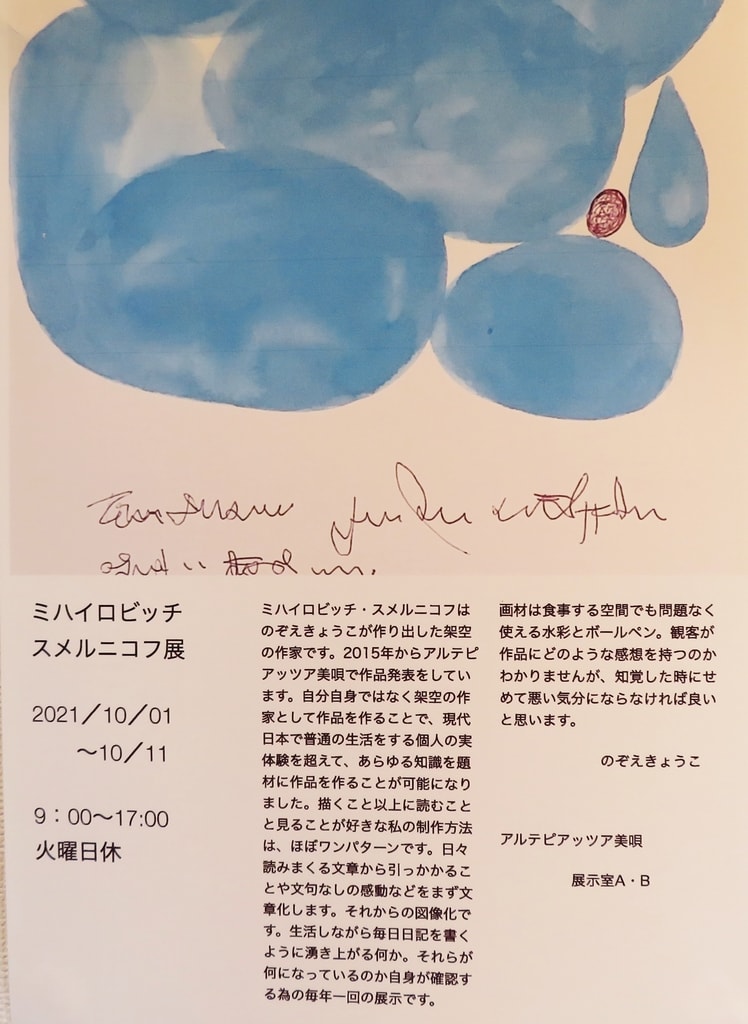 ミハイロビッチ
スメルニコフ展
2021／10／01
〜10／11
9：00〜17:00
火曜日休
ミハイロビッチ・スメルニコフは
のぞえきょうこが作り出した架空
の作家です。2015年からアルテピ
アッツア美唄で作品発表をしてい
ます。自分自身ではなく架空の作
家として作品を作ることで、現代
日本で普通の生活をする個人の実
体験を超えて、あらゆる知識を題
材に作品を作ることが可能になり
ました。描くこと以上に読むこと
と見ることが好きな私の制作方法
は、ほぼワンパターンです。日々
読みまくる文章から引っかかるこ
とや文句なしの感動などをまず文
章化します。それからの図像化で
す。生活しながら毎日日記を書く
ように湧き上がる何か。それらが
何になっているのか自身が確認す
る為の毎年一回の展示です。
画材は食事する空間でも問題なく
使える水彩とボールペン。観客が
作品にどのような感想を持つのか
わかりませんが、知覚した時にせ
めて悪い気分にならなければ良い
と思います。
のぞえきょうこ
アルテピアッツア美唄
展示室A・B